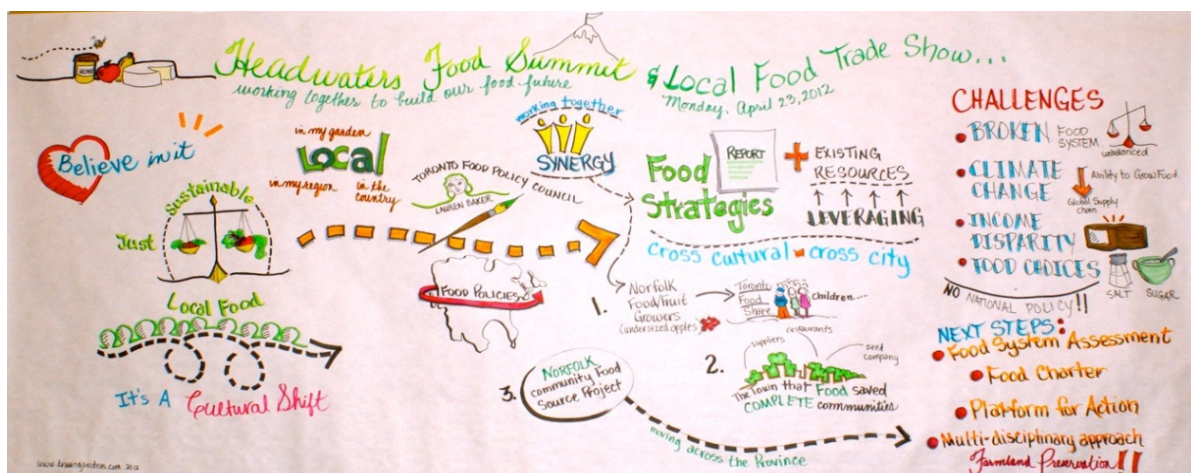 Headwaters Food Summit & Local Food Trade Show...
working together to build our food future
Monday, April 23, 2012
Believe in it
Sustainable
Just
Local Food
It's A Cultural Shift
in my garden
Local
in my region
in the country
TORONTO FOOD POLICY COUNCIL
LAUREN BAKER
FOOD POLICIES
working together
SYNERGY
Food
Strategies
REPORT
+ EXISTING
RESOURCES
LEVERAGING
CROSS CULTURAL - CROSS CITY
1. Norfolk
Food/Fruit
Growers
(undersized apples)
Toronto
Food
Share
children...
2.
suppliers
restaurants
seed
company
The Town that Food saved
COMPLETE communities
3. NORFOLK
community Food
Source Project
moving across the Province
CHALLENGES
BROKEN FOOD
SYSTEM
unbalanced
CLIMATE
CHANGE
Ability to Grow Food
Global Supply
Chain
INCOME
DISPARITY
FOOD CHOICES
SALT
SUGAR
NO NATIONAL POLICY!!
NEXT STEPS:
Food System Assessment
Food Charter
Platform for Action
Multi-disciplinary approach
Farmland Preservation!!